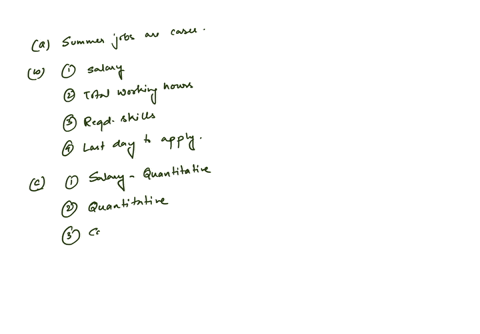 (a) Summer jobs are cases.
(b) ① Salary
② Total working hours
③ Reqd. skills
④ Last day to apply.
(c) ① Salary - Quantitative
② Quantitative
③ Ca